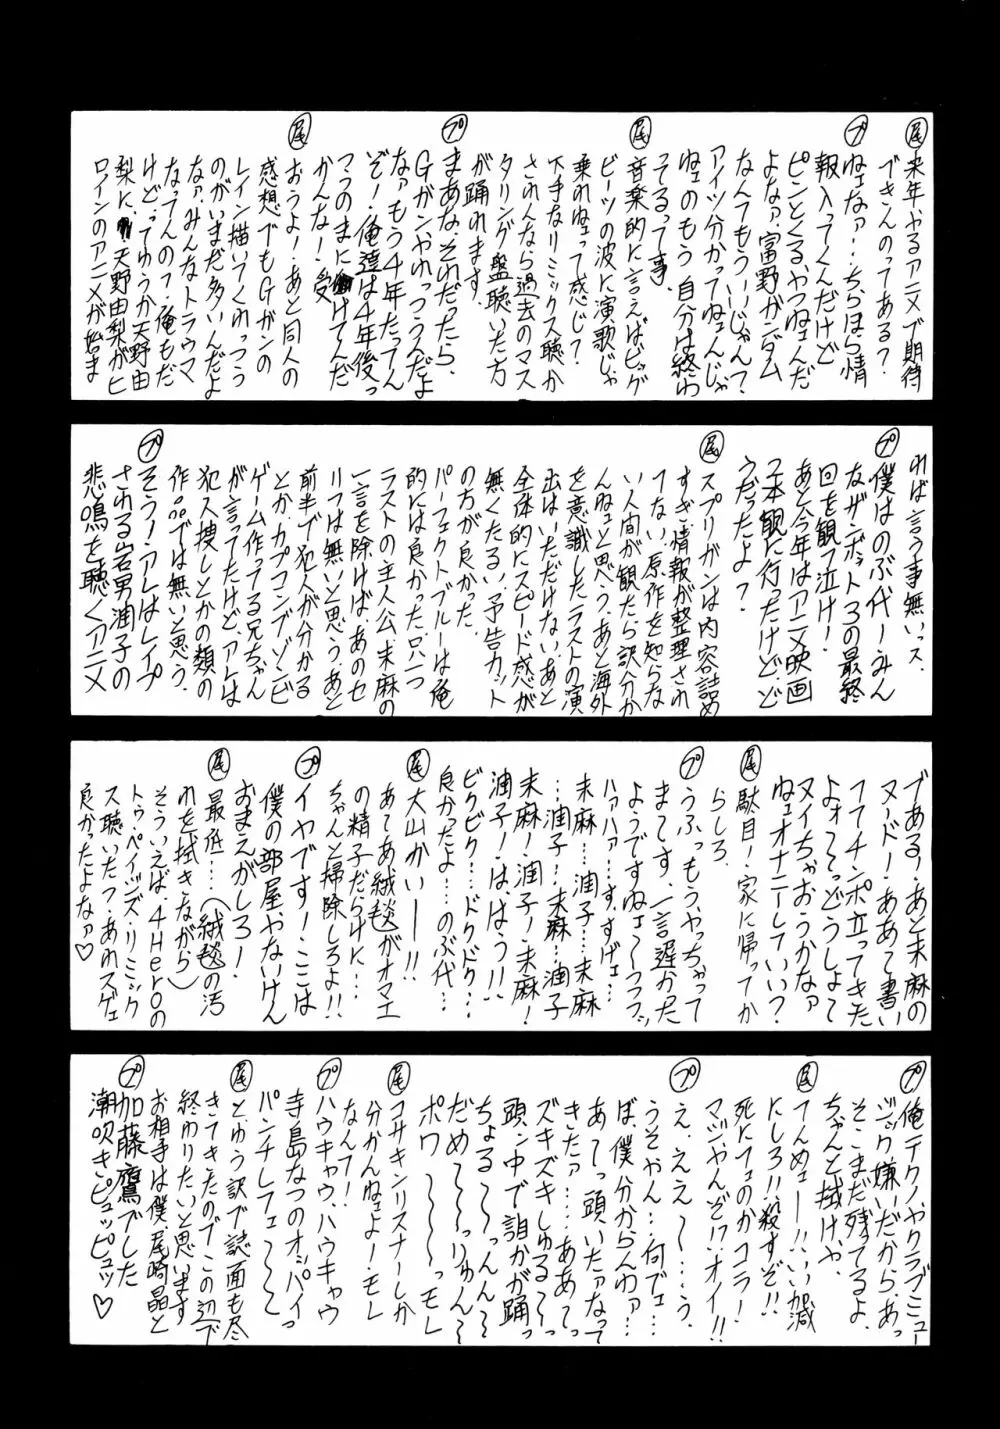 尾 来年やるアニメで期待
できんのってある？
プ ねェなァ…ちらほら情
報入ってくんだけど
ピンとくるやつねェんだ
よなァ、富野ガンダム
なんてもういいじゃん？
アイツ分かってねェんじゃ
ねェのもう自分は終わ
ってるって事。
尾 音楽的に言えばビッグ
ビーツの波に演歌じゃ
乗れねェって感じ？
下手なリミックス聴か
されんなら過去のマス
タリング盤聴いた方
が踊れます。
プ まあな、それだったら、
Gガン、やれっつうんだよ
なァもう4年たってん
ぞ！俺達は4年後っ
のまに
かんな！受
尾 おうよ！あと同人の
感想でもGガンの
レイン描いてくれっつう
のがいまだ多いんだよ
なァ、みんなトラウマ
なってんのっ？俺もだ
けど…ってゆうか天野由
梨に、天野由梨がヒ
ロインのアニメが始ま
れば言う事無いっス。
プ 僕はのぶ代ーみん
なザンボット3の最終
回を観って泣け！
あと今年はアニメ映画
2本観に行ったけど、ど
うだったよ？
尾 スプリガンは内容詰め
すぎ、情報が整理され
てない、原作を知らな
い人間が観たら訳分か
んねェと思う、あと海外
を意識したラストの演
出はいただけない、あと
全体的にスピード感が
無くたるい、予告カット
の方が良かった。
パーフェクトブルーは俺
的には良かった、只一つ
ラストの主人公、未麻の
一言を除けば、あのセ
リフは無いと思う、あと
前半で犯人が分かる
とか、カプコンでゾンビ
ゲーム作ってる兄ちゃん
が言ってたけど、アレは
犯人捜しとかの類の
作品では無いと思う。
プ そう！アレはレイプ
される岩男潤子の
悲鳴を聴くアニメ
である！あと未麻の
ヌード！ああて書い
ててチンポ立ってきた
よォ～～っどうしよって
ヌイちゃおうかなァ
ねェオナニーしていい？
尾 駄目！家に帰ってか
らしろ。
プ うふっもうやっちゃって
まーてす、一言遅かった
ようですねェ～～フフフッ
ハァハァ…すっすげェ…
未麻…潤子…未麻
…潤子…未麻…潤子
未麻！潤子！未麻！
潤子！はばう!!
ビクビク…ドクドク…
良かったよ…のぶ代…
尾 大山かいーー!!
あてあ絨毯がオマエ
の精子だらけに…
ちゃんと掃除しろよ!!
プ イヤです！ここは
僕の部屋やないけん
おまえがしろ！
尾 最低…（絨毯の汚
れを拭きながら）
そういえば、4Heroの
トゥ・ペイジズ・リミック
ス聴いたっ？あれスゲェ
良かったよなァ♡
プ 俺テクノやクラブミュー
ジック嫌いだから、あっ
そこまだ残ってるよ
ちゃんと拭けや、
尾 てんめェーー!!いい加減
にしろ!!殺すぞ!!
死にてェのかコラ！
マジやんぞ!?オイ!!
プ え、ええ～～…う、
うそやん…何でェ…
ぼ、僕分からんわァ…
あーーっ頭いたァなって
きたァ…ああーーっ
ズキズキしゅる～～っ
頭ン中で誰かが踊っ
ちょる～～っんん～
だめ～～っりゅん～
ポワ～～～っモレ
尾 コサキンリスナーしか
分かんねェよ！モレ
なんて！
プ ハウキャウ、ハウキャウ
寺島なつのオッパイっ
パンチしてェ～～～
尾 とゆう訳で誌面も尽
きてきたのでこの辺で
終わりたいと思います
お相手は僕、尾崎晶と
プ 加藤鷹でした
潮吹きピュッピュッ♡